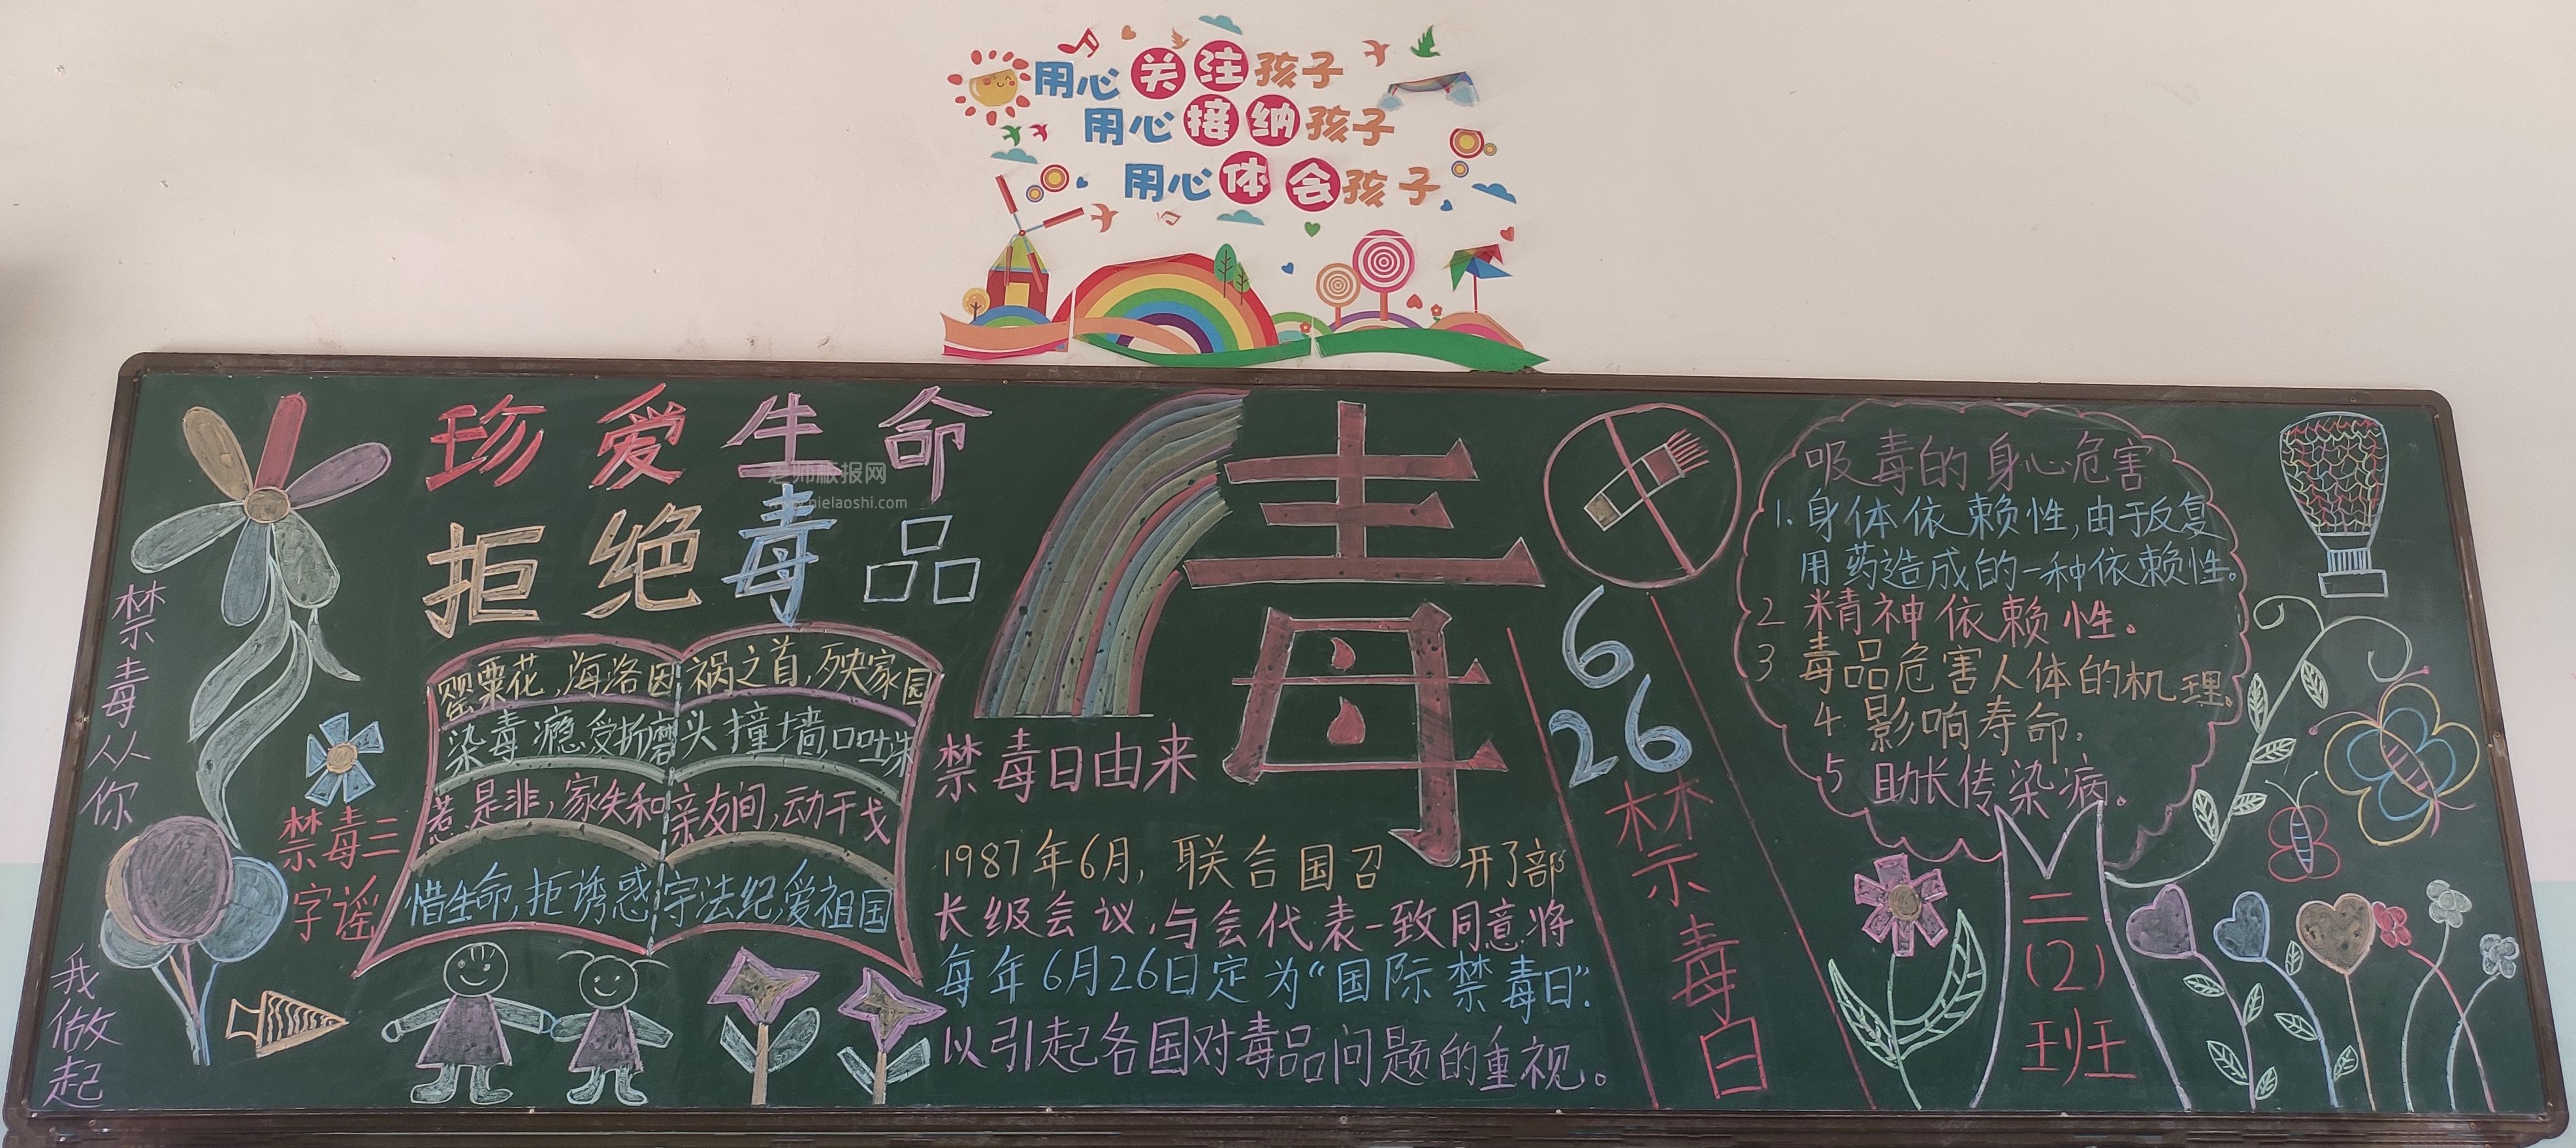 用心关注孩子
用心接纳孩子
用心体会孩子
珍爱生命
拒绝毒品
老师板报网
禁毒从你
我做起
禁毒三
字谣
罂粟花,海洛因,祸之首,殃家园
染毒瘾,受折磨,头撞墙,口吐沫
惹是非,家失和,亲友间,动干戈
惜生命,拒诱惑,守法纪,爱祖国
毒
禁毒日由来
1987年6月,联合国召 开了部
长级会议,与会代表一致同意将
每年6月26日定为“国际禁毒日”.
以引起各国对毒品问题的重视。
6
26
禁毒日
吸毒的身心危害
1.身体依赖性,由于反复
用药造成的一种依赖性。
2 精神依赖性。
3 毒品危害人体的机理。
4 影响寿命.
5 助长传染病。
二
(2)
班